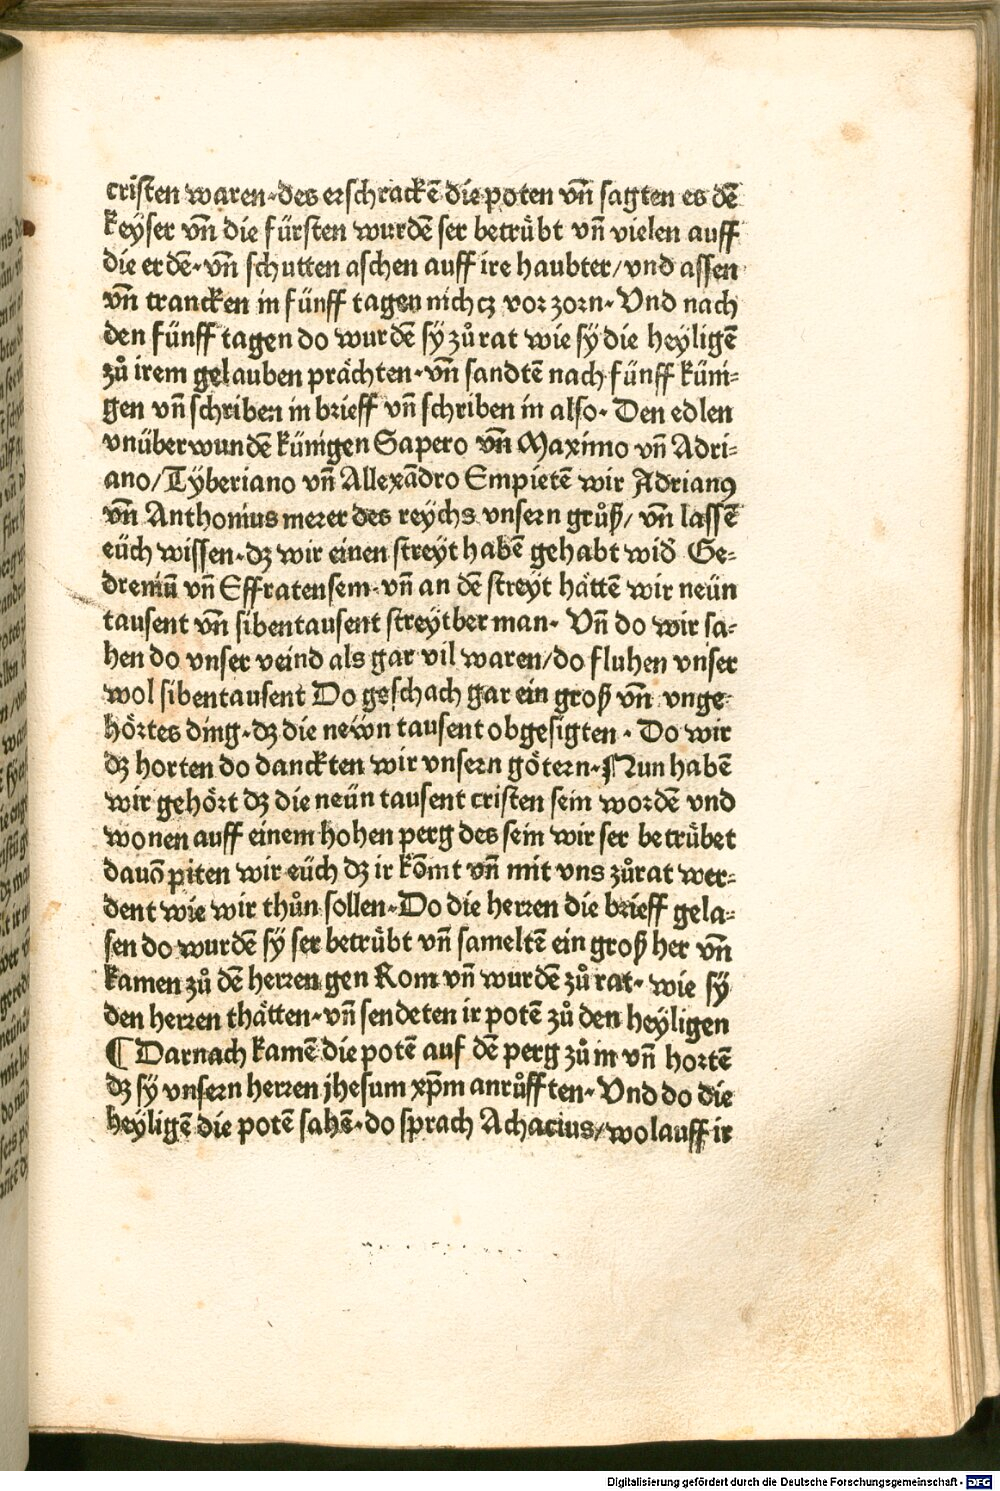 cristen waren·des erschrackē die poten vn̄ sagten es dē
keyser vn̄ die fürsten wurdē ser betruͤbt vn̄ vielen auff
die erdē·vn̄ schutten aschen auff ire haubter/vnd assen
vn̄ trancken in fünff tagen nichcz vor zorn·Vnd nach
den fünff tagen do wurdē sÿ zuͦ rat wie sÿ die heÿligē
zuͦ irem gelauben praͤchten·vn̄ sandtē nach fünff küni⸗
gen vn̄ schriben in brieff vn̄ schriben in also·Den edlen
vnüberwundē künigen Sapero vn̄ Maximo vn̄ Adri⸗
ano/Tÿberiano vn̄ Allexādro Empietē wir Adrianꝯ
vn̄ Anthonius merer des reÿchs vnsern gruͦß/vn̄ lassē
eüch wissen·dz wir einen streÿt habē gehabt wid̄ Ge⸗
dremiū vn̄ Effratensem·vn̄ an dē streÿt haͤttē wir neün
tausent vn̄ sibentausent streÿtber man·Vn̄ do wir sa⸗
hen do vnser veind als gar vil waren/do fluhen vnser
wol sibentausent Do geschach gar ein groß vn̄ vnge⸗
hoͤrtes ding·dz die neẅn tausent obgesigten·Do wir
dz horten do danckten wir vnsern goͤtern·Nun habē
wir gehoͤrt dz die neün tausent cristen sein wordē vnd
wonen auff einem hohen perg des sein wir ser betruͤbet
dauō piten wir eüch dz ir kōmt vn̄ mit vns zuͦ rat wer⸗
dent wie wir thuͦn sollen·Do die herren die brieff gela⸗
sen do wurdē sÿ ser betruͤbt vn̄ sameltē ein groß her vn̄
kamen zuͦ dē herren gen Rom vn̄ wurdē zuͦ rat·wie sÿ
den herren thaͤtten·vn̄ sendeten ir potē zuͦ den heÿligen
¶ Darnach kamē die potē auf dē perg zuͦ in vn̄ hortē
dz sÿ vnsern herren jhesum xp̄m anruͦfften·Vnd do die
heÿligē die potē sahē·do sprach Achacius/wolauff ir
Digitalisierung gefördert durch die Deutsche Forschungsgemeinschaft - DFG